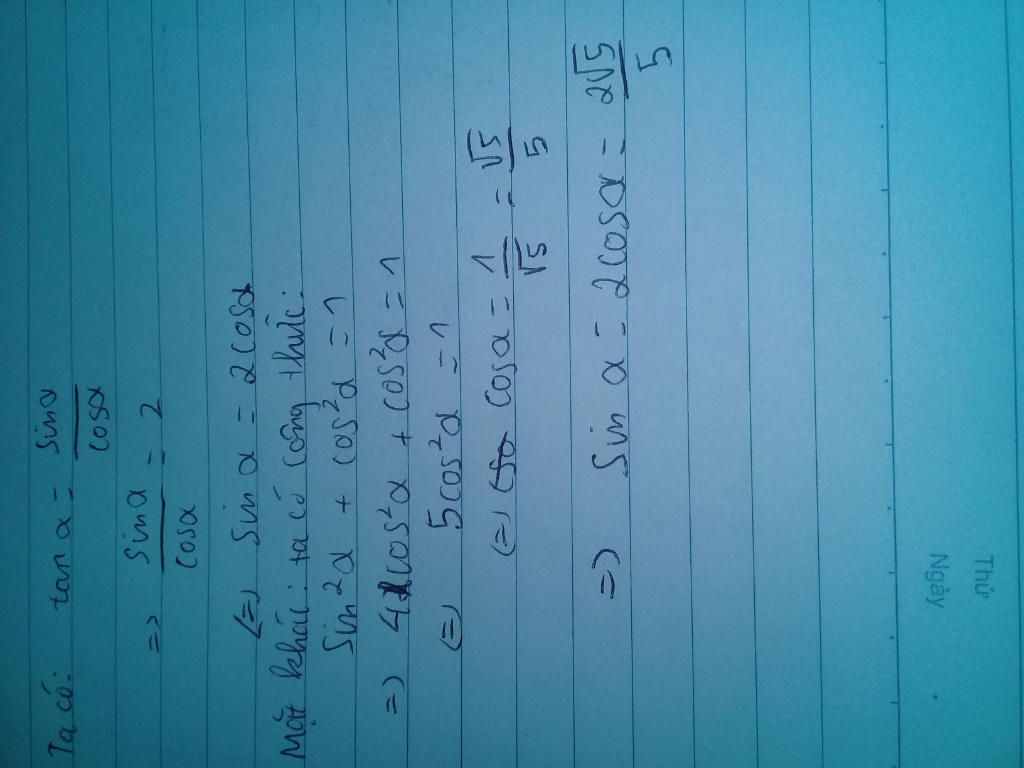 Ta có: tan α = sin α / cos α
=> sin α / cos α = 2
<=> sin α = 2 cos α
Mặt khác: ta có công thức:
Sin²α + cos²α = 1
=> 4cos²α + cos²α = 1
<=> 5cos²α = 1
<=> cos α = 1/√5 = √5/5
=> Sin α = 2cos α = 2√5/5
Thứ
Ngày